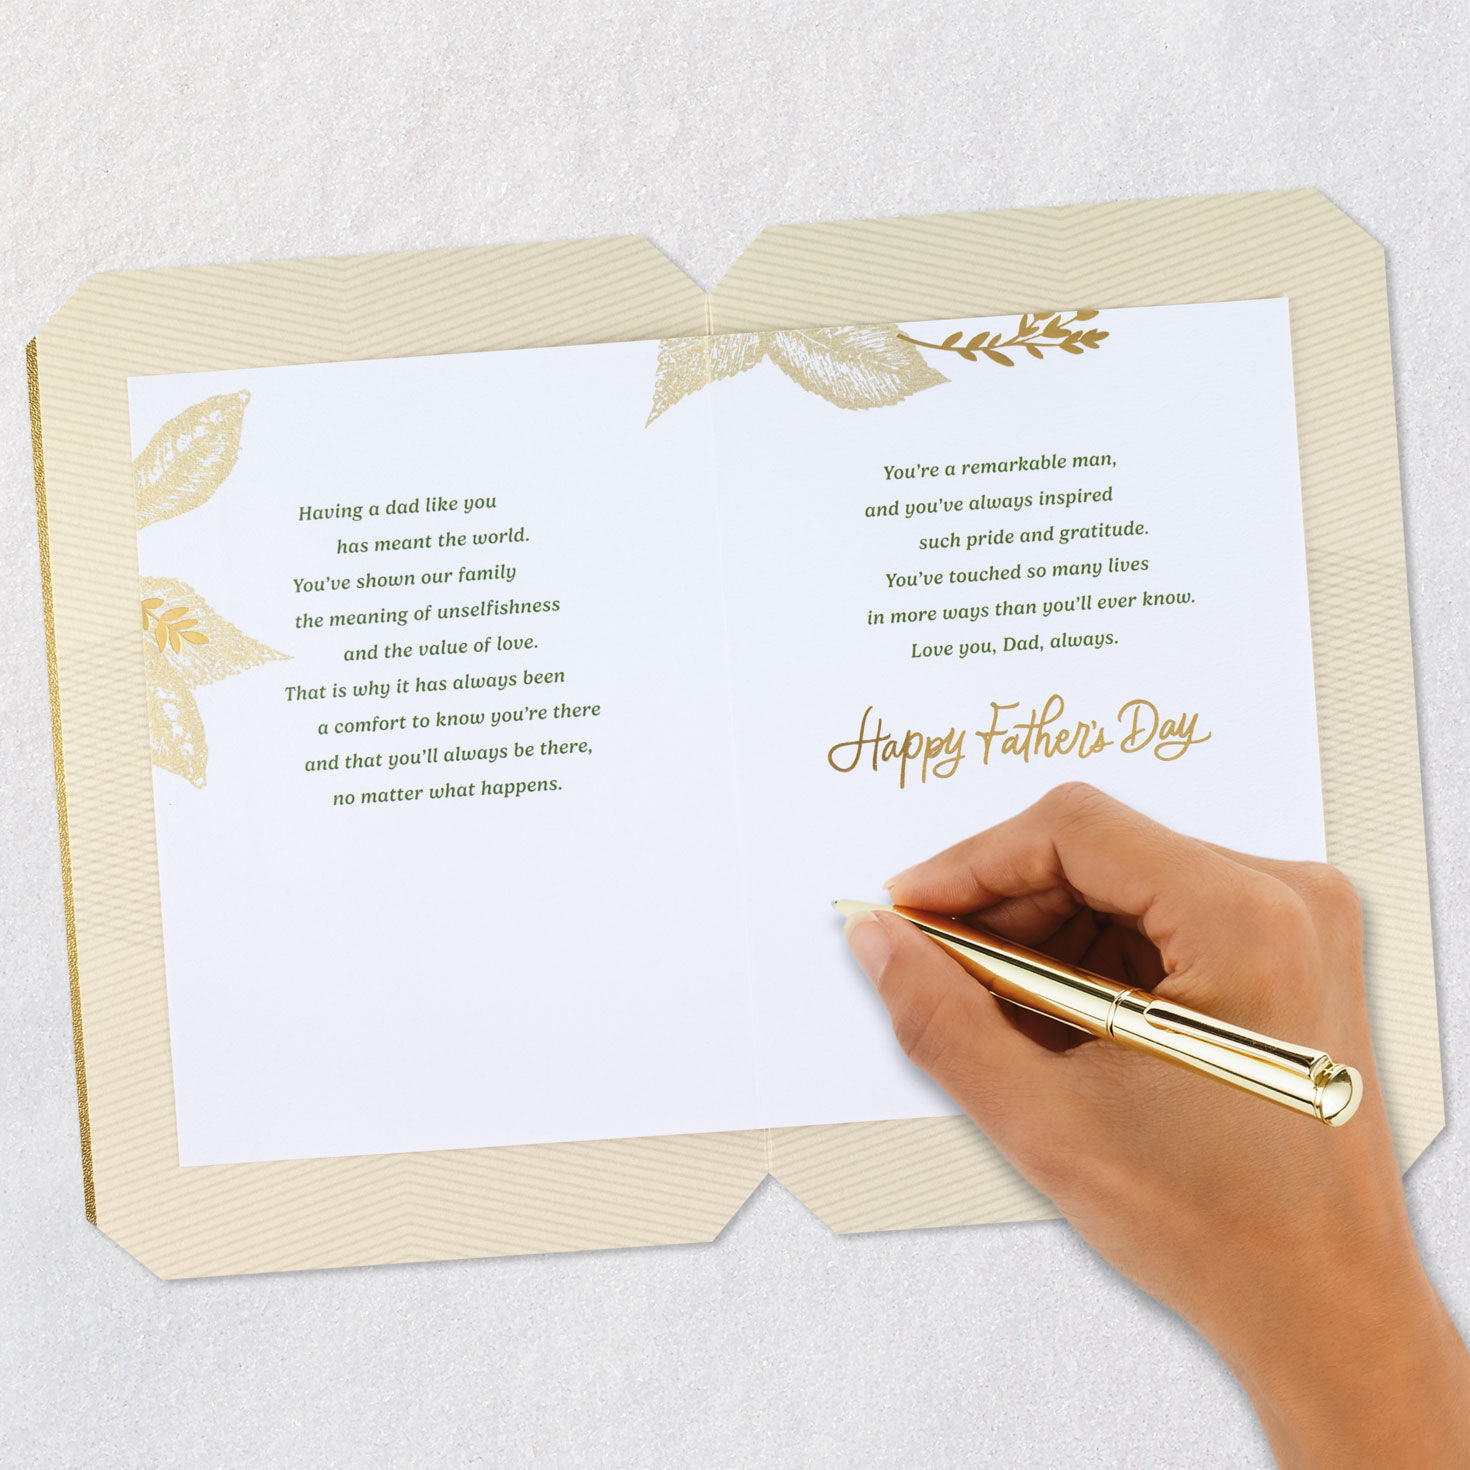 Having a dad like you
has meant the world.
You've shown our family
the meaning of unselfishness
and the value of love.
That is why it has always been
a comfort to know you're there
and that you'll always be there,
no matter what happens.
You're a remarkable man,
and you've always inspired
such pride and gratitude.
You've touched so many lives
in more ways than you'll ever know.
Love you, Dad, always.
Happy Father's Day